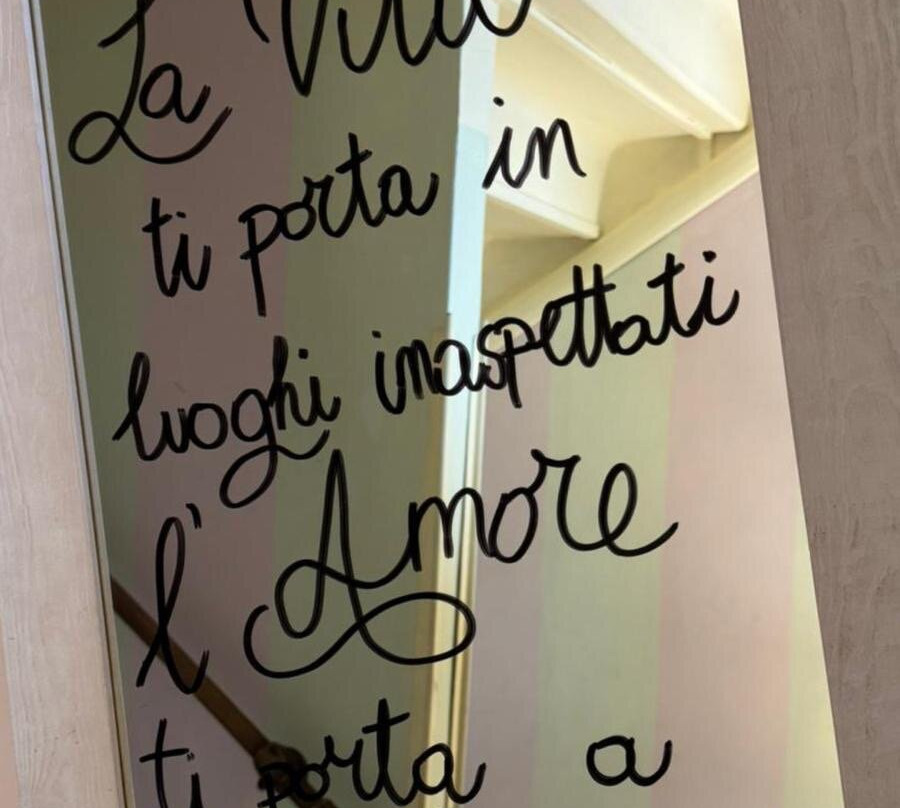 La Vita
ti porta in
luoghi inaspettati
l'Amore
ti porta a